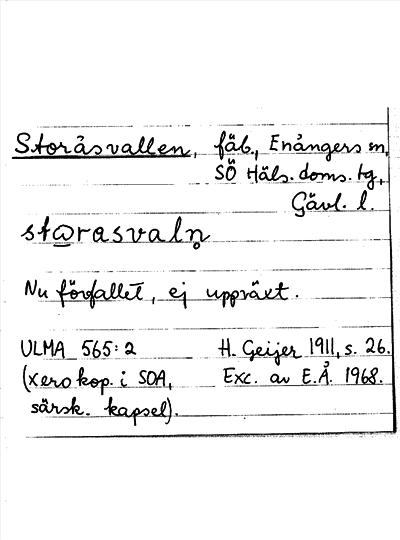 Storåsvallen, fäb., Enångers sn,
SÖ Häls. doms. tg,
Gävl. l.
Nu förfallet, ej uppväxt.
ULMA 565:2 H. Geijer 1911, s. 26.
(xerokop. i SOA, Exc. av E.Å. 1968.
särsk. kapsel).